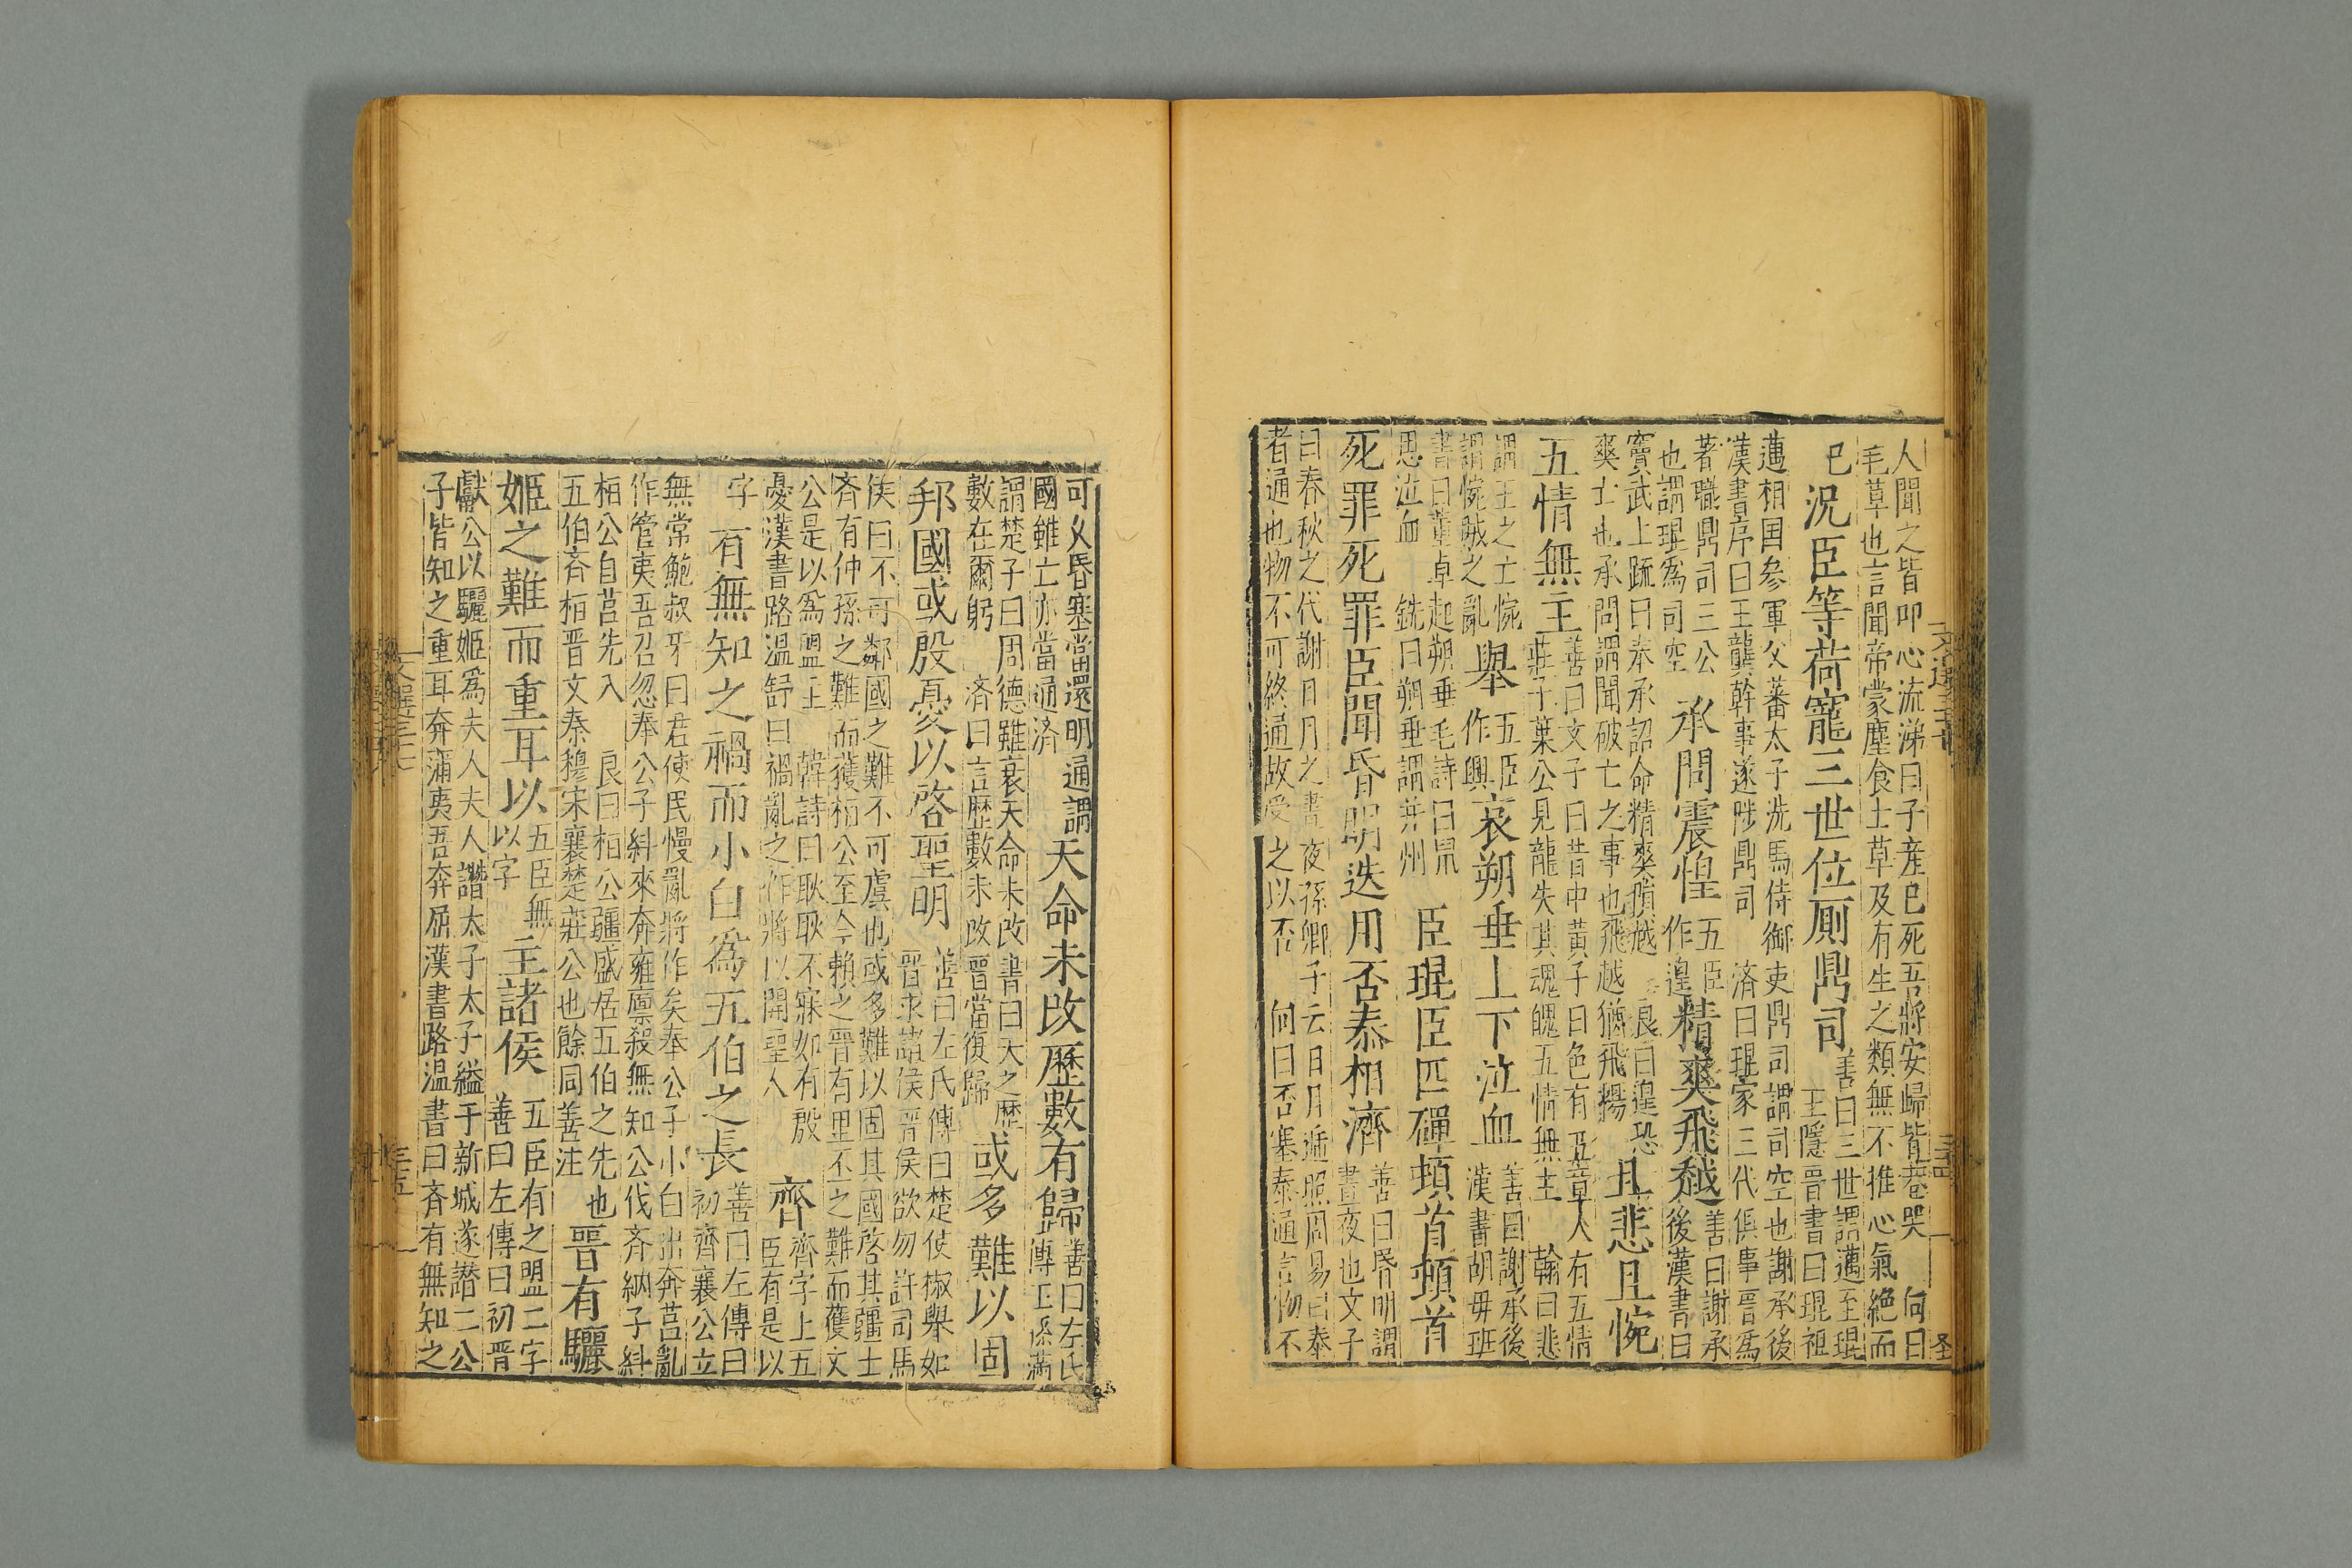 人聞之皆叩心流涕曰子産已死吾將安歸皆巷哭 向曰
毛草也言聞帝蒙塵食土草及有生之類無不推心氣絶而
已
況臣等荷寵三世位厠鼎司
善曰三世謂邁至琨
王隱晉書曰琨祖
邁相国參軍父蕃太子洗馬侍御吏鼎司謂司空也謝承後
漢書序曰王龔幹事遂陟鼎司 濟曰琨家三代俱事晉爲
著職鼎司三公
也謂琨爲司空
承問震惶
五臣
作遑
精爽飛越
善曰謝承
後漢書曰
竇武上䟽曰奉承詔命精爽隕越 良曰遑恐
爽士也承問謂聞破亡之事也飛越猶飛揚
且悲且惋
五情無主
善曰文子曰昔中黃子曰色有五章人有五情
莊子葉公見龍失其魂魄五情無主 翰曰悲
謂王之亡惋
謂惋賊之亂
舉
五臣
作興
哀朔垂上下泣血
善曰謝承後
漢書胡毋班
書曰董卓起朔垂毛詩曰鼠
思泣血 銑曰朔垂謂并州
臣琨臣匹磾頓首頓首
死罪死罪臣聞昏明迭用否泰相濟
善曰昏明謂
晝夜也文子
曰春秋之代謝日月之晝夜孫卿子云日月遞照周易曰泰
者通也物不可終通故受之以否 向曰否塞泰通言物不
可乆昏塞當還明通謂
國雖亡亦當通濟
天命未改歷數有歸
善曰左氏
傳王孫滿
謂楚子曰周德雖衰天命未改書曰天之歷
數在爾躬 濟曰言歷數未改晉當復歸
或多難以固
邦國或殷憂以啓聖明
善曰左氏傳曰楚使椒舉如
晉求諸侯晉侯欲勿許司馬
侯曰不可鄰國之難不可虞也或多難以固其國啓其疆土
齊有仲孫之難而獲桓公至今賴之晉有里丕之難而獲文
公是以爲盟主 韓詩曰耿耿不寐如有殷
憂漢書路温舒曰禍亂之作將以開聖人
齊
齊字上五
臣有是以
字
有無知之禍而小白爲五伯之長
善曰左傳曰
初齊襄公立
無常鮑叔牙曰君使民慢亂將作矣奉公子小白出奔莒亂
作管夷吾召忽奉公子糾來奔雍廩殺無知公伐齊納子糾
桓公自莒先入 良曰桓公疆盛居五伯之先也
五伯斉桓晋文秦穆宋襄楚莊公也餘同善注
晋有驪
姬之難而重耳以
五臣無
以字
主諸侯
五臣有之盟二字
善曰左傳曰初晋
獻公以驪姬爲夫人夫人譖太子太子縊于新城遂譖二公
子皆知之重耳奔蒲夷吾奔屈漢書路温書曰斉有無知之